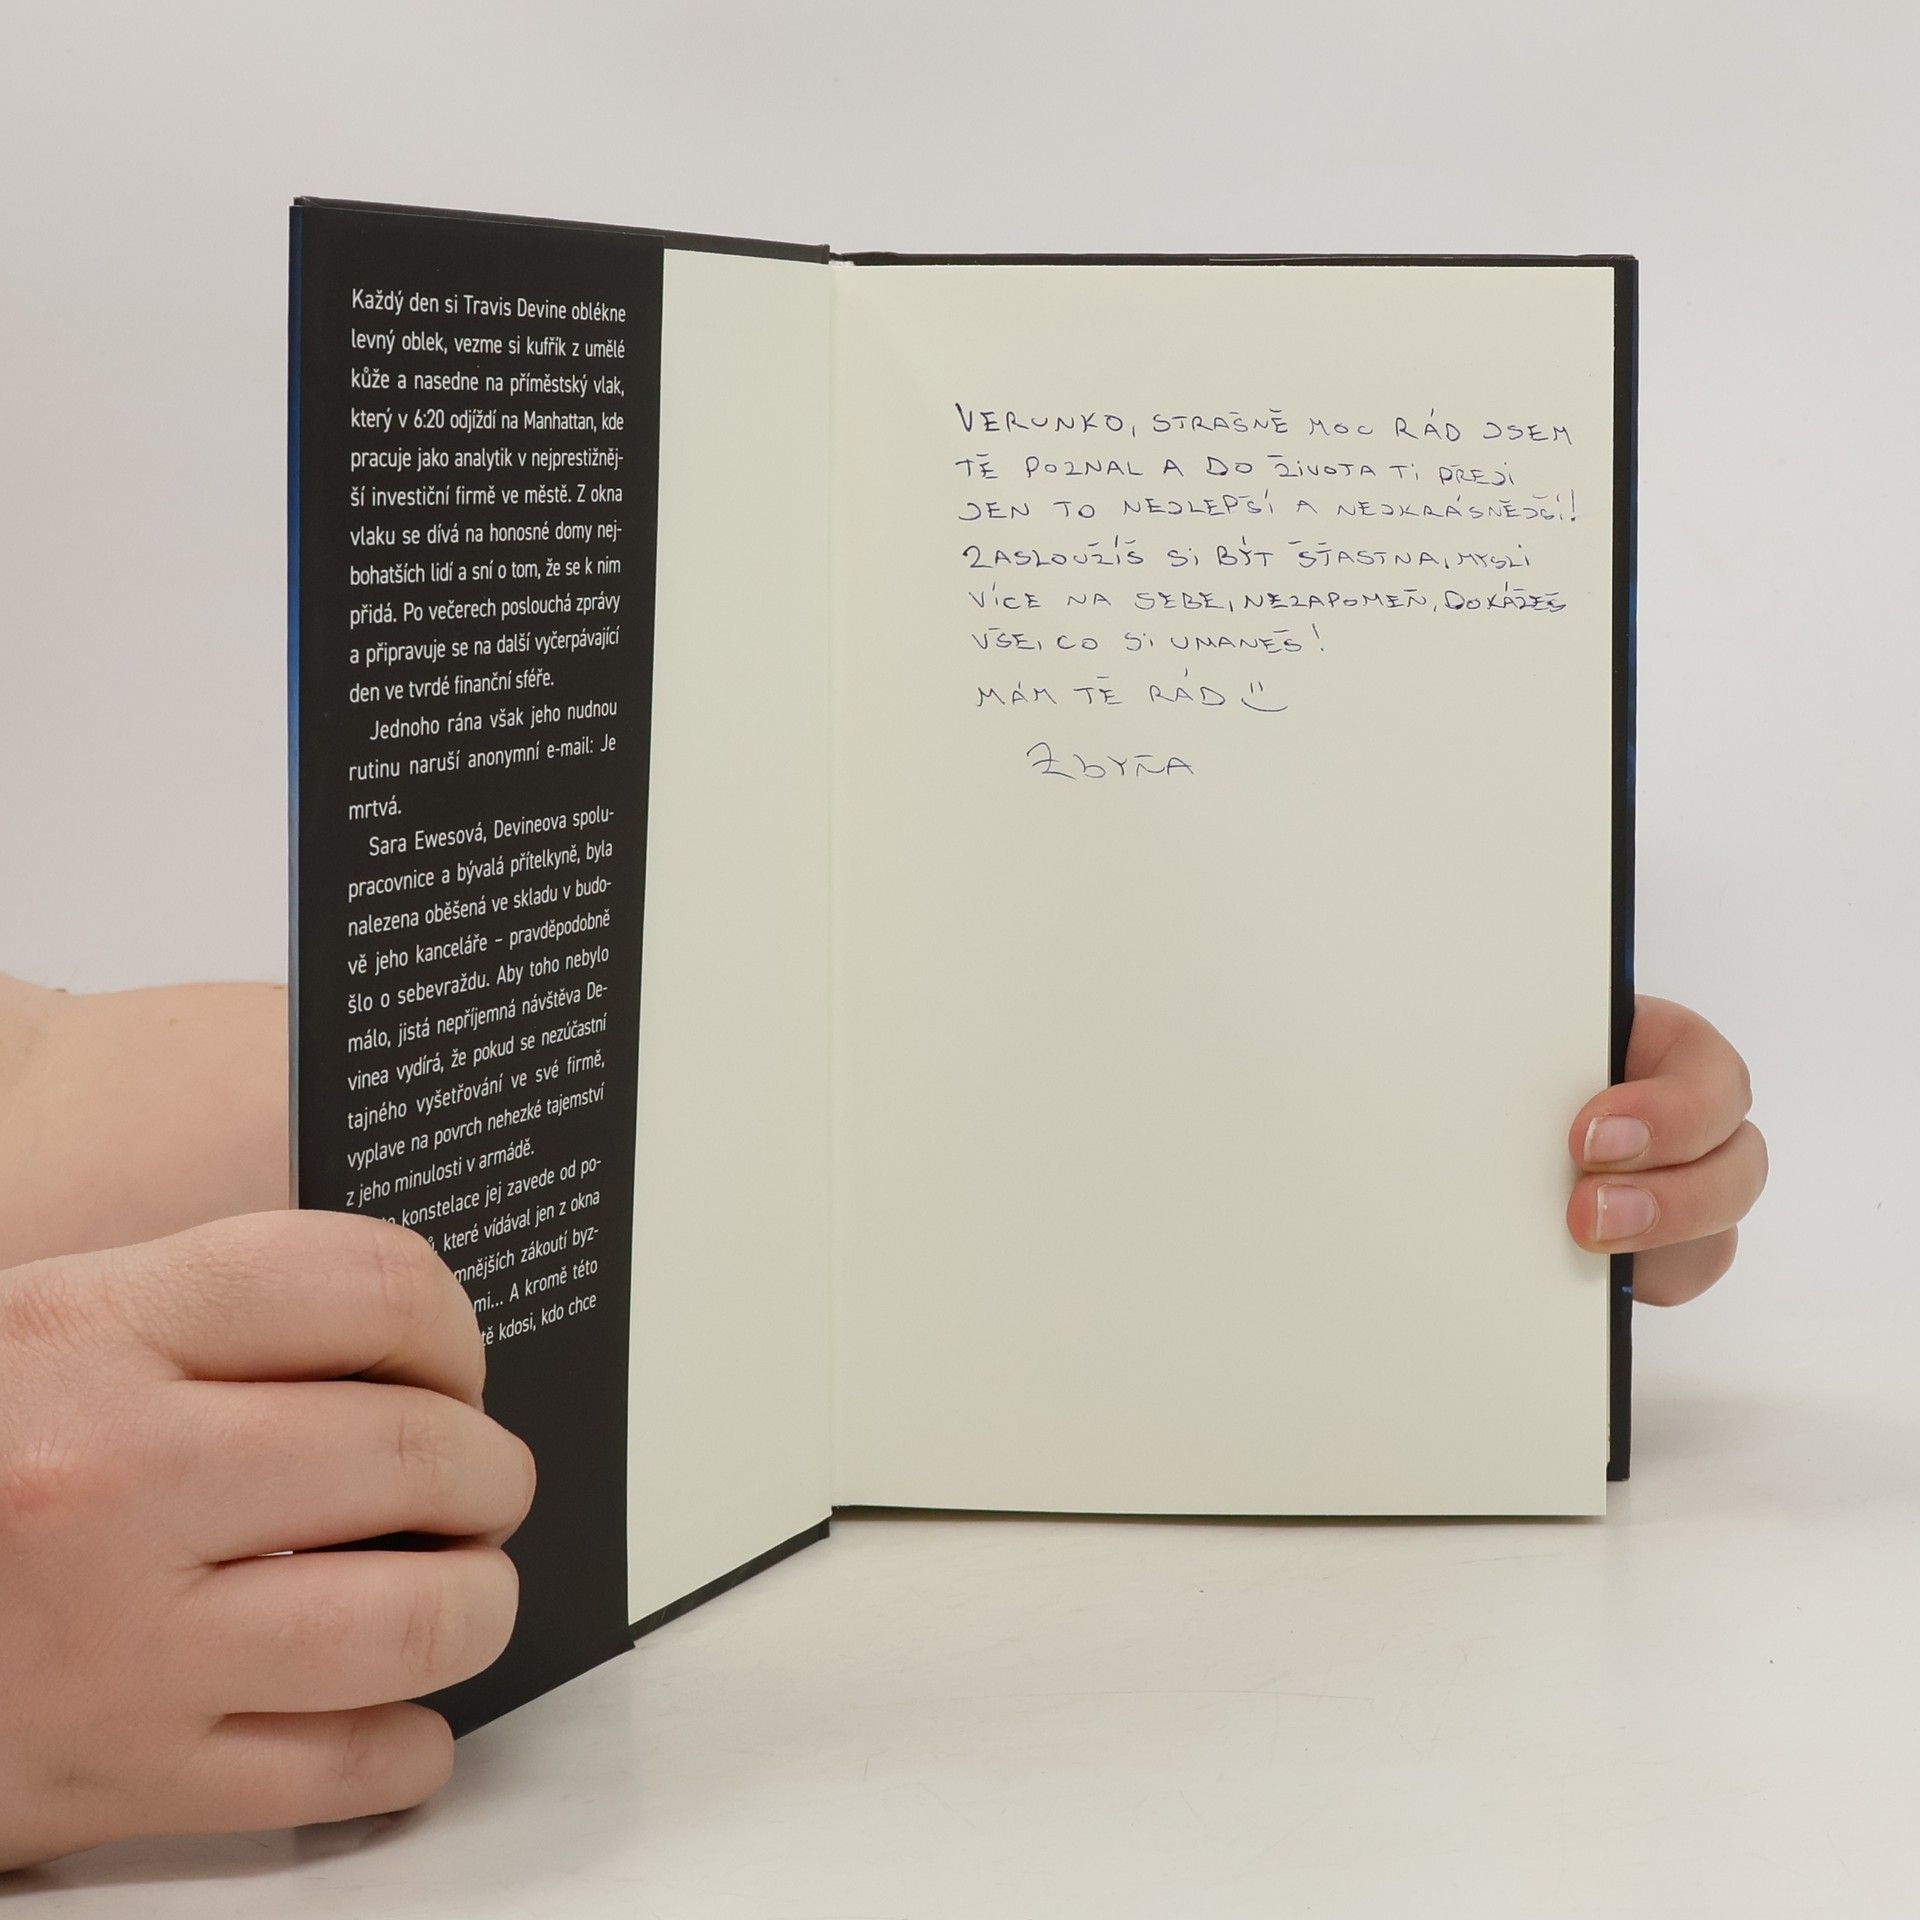 Každý den si Travis Devine oblékne
levný oblek, vezme si kufřík z umělé
kůže a nasedne na příměstský vlak,
který v 6:20 odjíždí na Manhattan, kde
pracuje jako analytik v nejprestižněj-
ší investiční firmě ve městě. Z okna
vlaku se dívá na honosné domy nej-
bohatších lidí a sní o tom, že se k nim
přidá. Po večerech poslouchá zprávy
a připravuje se na další vyčerpávající
den ve tvrdé finanční sféře.
Jednoho rána však jeho nudnou
rutinu naruší anonymní e-mail: Je
mrtvá.
Sara Ewesová, Devineova spolu-
pracovnice a bývalá přítelkyně, byla
nalezena oběšená ve skladu v budo-
vě jeho kanceláře – pravděpodobně
šlo o sebevraždu. Aby toho nebylo
málo, jistá nepříjemná návštěva De-
vinea vydírá, že pokud se nezúčastní
tajného vyšetřování ve své firmě,
vyplave na povrch nehezké tajemství
z jeho minulosti v armádě.
konstelace jej zavede od po-
které vídával jen z okna
mnějších zákoutí byz-
mi... A kromě této
tě kdosi, kdo chce
VERUNKO, STRAŠNĚ MOC RÁD JSEM
TĚ POZNAL A DO ŽIVOTA TI PŘEJI
JEN TO NEJLEPŠÍ A NEJKRÁSNĚJŠÍ!
ZASLOUŽÍŠ SI BÝT ŠŤASTNA, MYSLI
VÍCE NA SEBE, NEZAPOMEŇ, DOKÁŽEŠ
VŠE, CO SI UMANEŠ!
MÁM TĚ RÁD
ZBYŇA